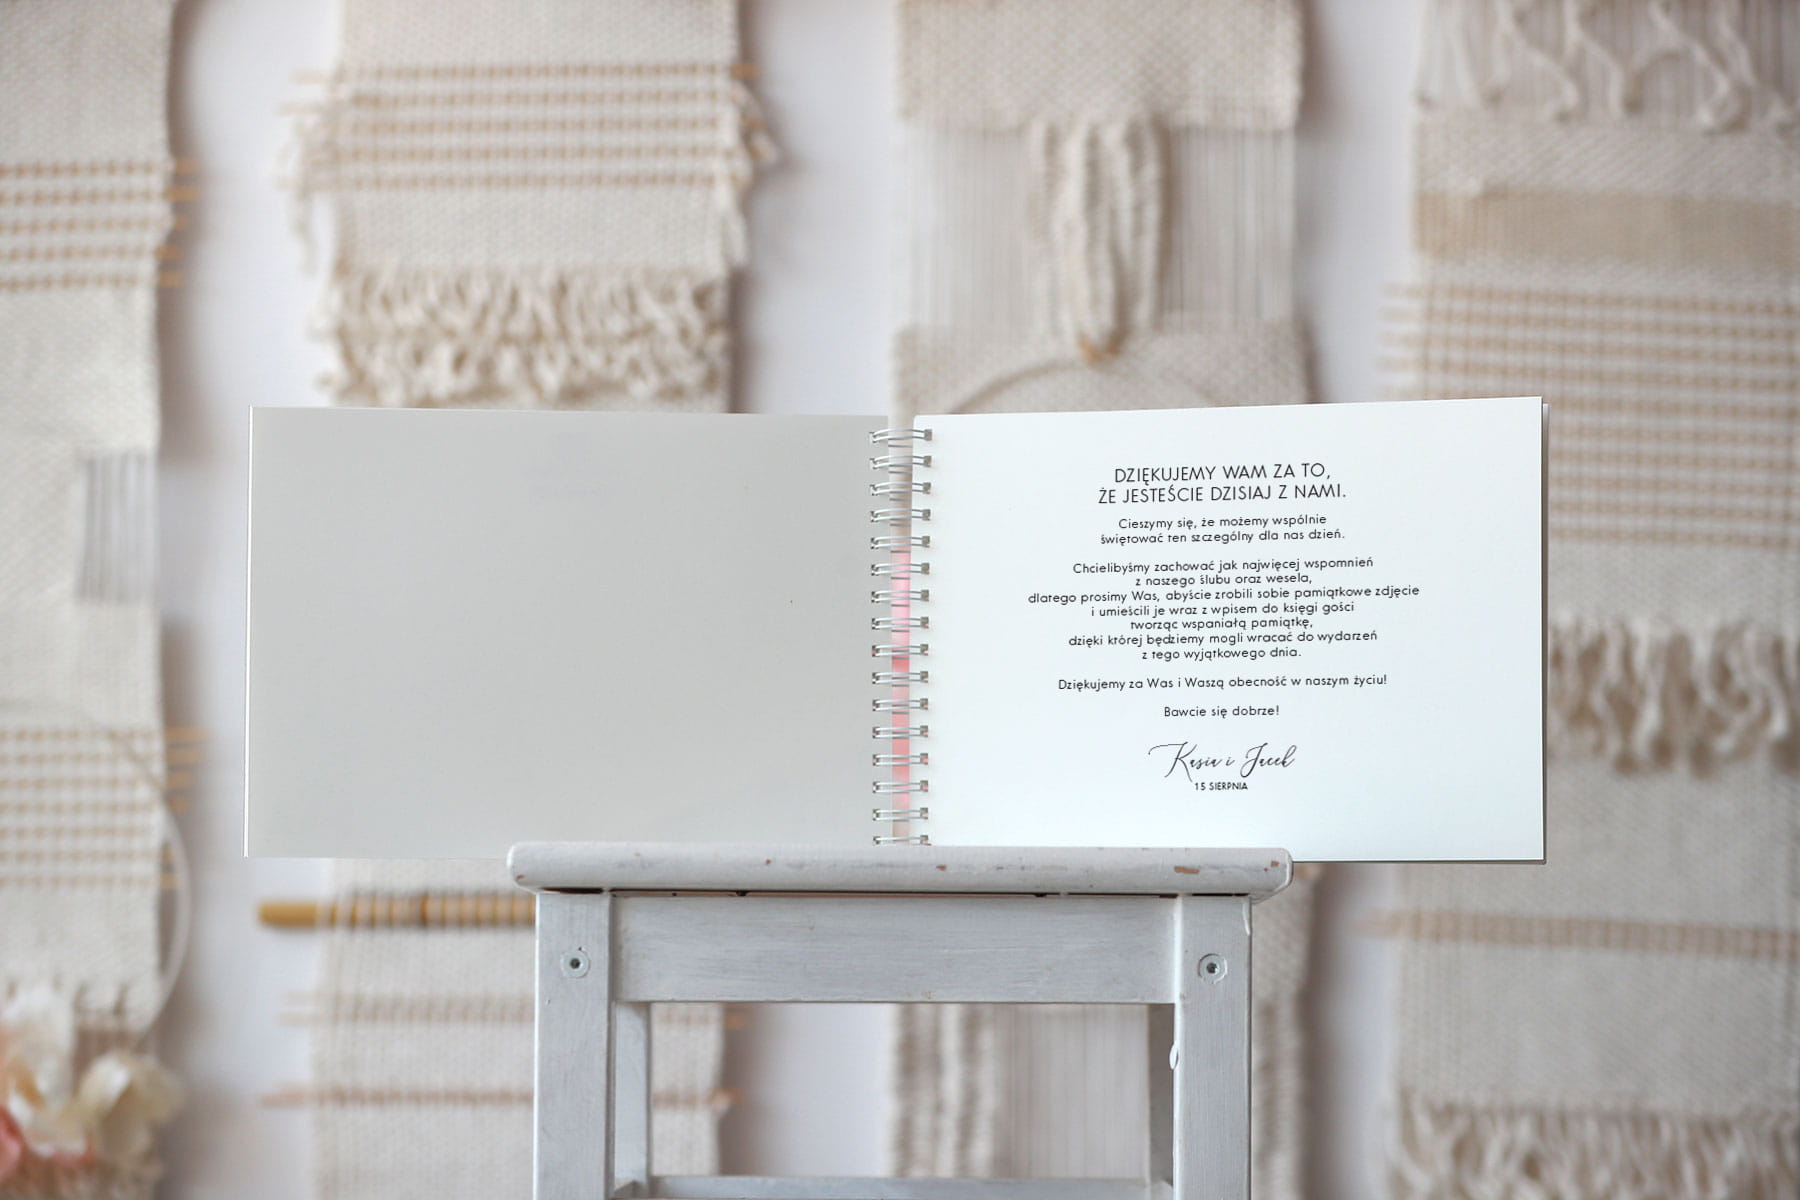 DZIĘKUJEMY WAM ZA TO,
ŻE JESTEŚCIE DZISIAJ Z NAMI.
Cieszymy się, że możemy wspólnie
świętować ten szczególny dla nas dzień.
Chcielibyśmy zachować jak najwięcej wspomnień
z naszego ślubu oraz wesela,
dlatego prosimy Was, abyście zrobili sobie pamiątkowe zdjęcie
i umieścili je wraz z wpisem do księgi gości
tworząc wspaniałą pamiątkę,
dzięki której będziemy mogli wracać do wydarzeń
z tego wyjątkowego dnia.
Dziękujemy za Was i Waszą obecność w naszym życiu!
Bawcie się dobrze!
Kasia i Jacek
15 SIERPNIA